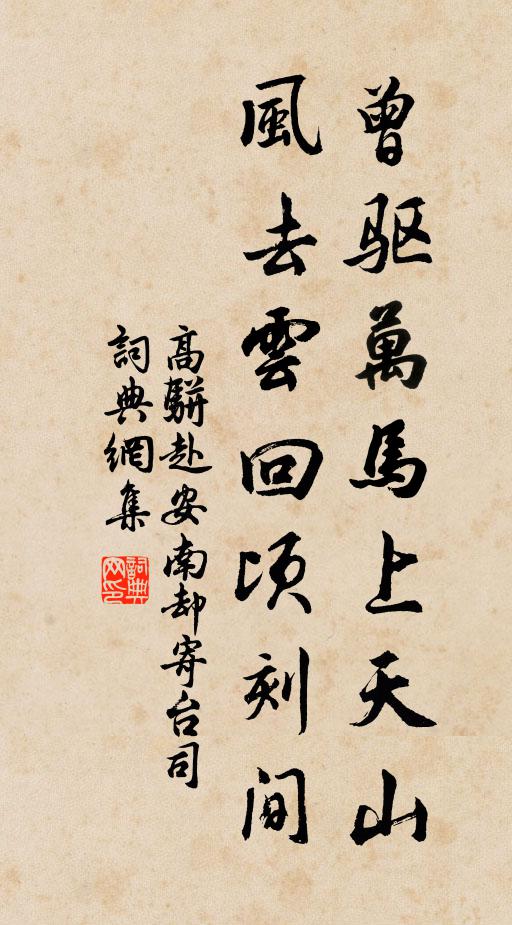 曾驱萬馬上天山
風去雲回頃刻间
高駢赴安南却寄台司
詞典網集
詞典网印